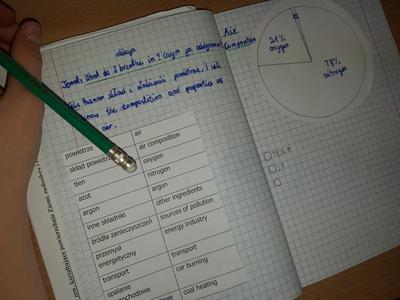 Temat: What do I breathe in? Czym ja oddycham?
Cel: Poznam skład i właściwości powietrza. I will
know the composition and properties of
air.
powietrze air
skład powietrza air composition
tlen oxygen
azot nitrogen
argon argon
inne składniki other ingredients
źródła zanieczyszczeń sources of pollution
przemysł energetyczny energy industry
transport transport
spalanie car burning
coal heating
Air
Composition
21%
oxygen
78%
nitrogen